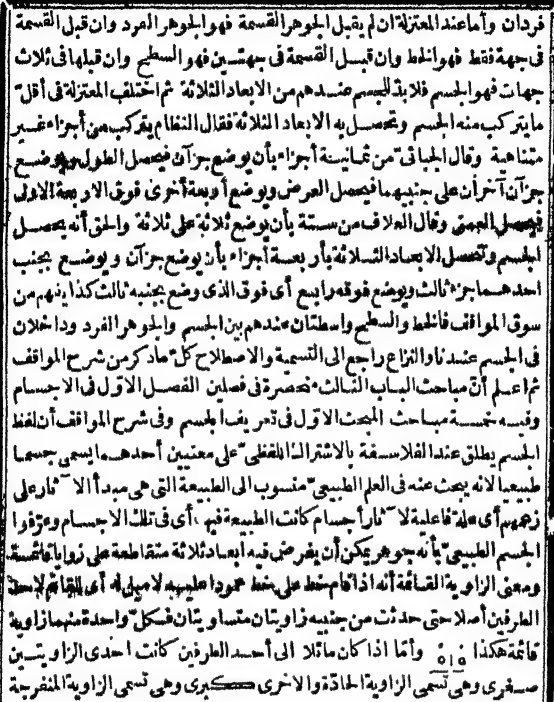 فردان وأما عند المعتزلة ان لم يقبل الجوهر القسمة فهو الجوهر الفرد وان قبل القسمة
فى جهة فقط فهو الخط وان قبل القسمة فى جهتين فهو السطح وان قبلها فى ثلاث
جهات فهو الجسم فلابد للجسم عندهم من الابعاد الثلاثة ثم اختلف المعتزلة فى أقل
مايتركب منه الجسم وتحصل به الابعاد الثلاثة فقال النظام يتركب من أجزاء غير
متناهية وقال الجبائى من ثمانية أجزاء بأن يوضع جزآن فيحصل الطول ويوضع
جزآن آخران على جنبيهما فيحصل العرض ويوضع أربعة أخرى فوق الاربعة الاول
فيحصل العمق وقال العلاف من ستة بأن يوضع ثلاثة على ثلاثة والحق أنه يحصل
الجسم وتحصل الابعاد الثلاثة بأربعة أجزاء بأن يوضع جزآن ويوضع بجنب
احدهما جزء ثالث ويوضع فوقه رابع أى فوق الذى وضع بجنبه ثالث كذا يفهم من
سوق المواقف فالخط والسطح واسطتان عندهم بين الجسم والجوهر الفرد وداخلان
فى الجسم عندنا والنزاع راجع الى التسمية والاصطلاح كل ماذكر من شرح المواقف
ثم اعلم أن مباحث الباب الثالث منحصرة فى فصلين الفصل الاول فى الاجسام
وفيه خمسة مباحث المبحث الاول فى تعريف الجسم وفى شرح المواقف أن لفظ
الجسم يطلق عند الفلاسفة بالاشتراك اللفظى على معنيين أحدهما يسمى جسما
طبيعيا لانه يبحث عنه فى العلم الطبيعى منسوب الى الطبيعة التى هى مبدأ الآثار على
زعمهم أى علة فاعلية لآثار أجسام كانت الطبيعة فيها أى فى تلك الاجسام وعرفوا
الجسم الطبيعى بأنه جوهر يمكن أن يفرض فيه ابعاد ثلاثة متقاطعة على زوايا قائمة
ومعنى الزاوية القائمة أنه اذا قام خط على خط عمودا عليه لا ميل له أى للقائم لاحد
الطرفين أصلا حتى حدثت من جنبيه زاويتان متساويتان فكل واحدة منهما زاوية
قائمة هكذا وأما اذا كان مائلا الى أحد الطرفين كانت احدى الزاويتين
صغرى وهى تسمى الزاوية الحادة والاخرى كبرى وهى تسمى الزاوية المنفرجة